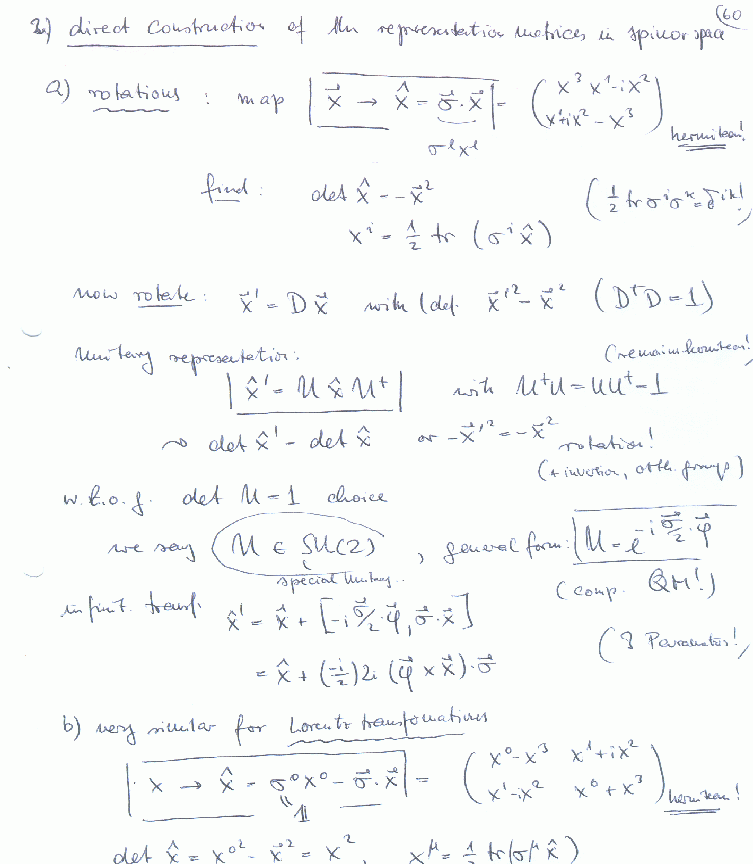 (60
2.) direct construction of the representation matrices in spinor space
a) rotations : map | x⃗ → x̂ = σ⃗·x⃗ | = ( x³ x¹-ix² ; x¹+ix² -x³ ) hermitean!
σˡxˡ
find : det x̂ = -x⃗² ( ½ tr σⁱσᵏ = δⁱᵏ! )
xⁱ = ½ tr (σⁱ x̂)
now rotate : x⃗' = D x⃗ with (def. x⃗'² = x⃗² (D⁺D = 1)
Unitary representation: (remain hermitean!
| x̂' = U x̂ U⁺ | with U⁺U = UU⁺ = 1
⤳ det x̂' = det x̂ or -x⃗'² = -x⃗² rotation!
(+ inversion, orth. groups)
w.l.o.g. det U = 1 choice
we say U ∈ SU(2) , general form: U = e^{-i σ⃗/2 · φ⃗}
special Unitary.. (comp. QM!)
infinit. transf. x̂' = x̂ + [-i σ⃗/2·φ⃗, σ⃗·x⃗]
(3 Parameters!
= x̂ + (-i/2) 2i (φ⃗ × x⃗)·σ⃗
b) very similar for Lorentz transformations
| x → x̂ = σ⁰x⁰ - σ⃗·x⃗ | = ( x⁰-x³ x¹+ix² ; x¹-ix² x⁰+x³ ) hermitean!
𝟙
det x̂ = x⁰² - x⃗² = x² , xᵘ = ½ tr(σᵘ x̂)